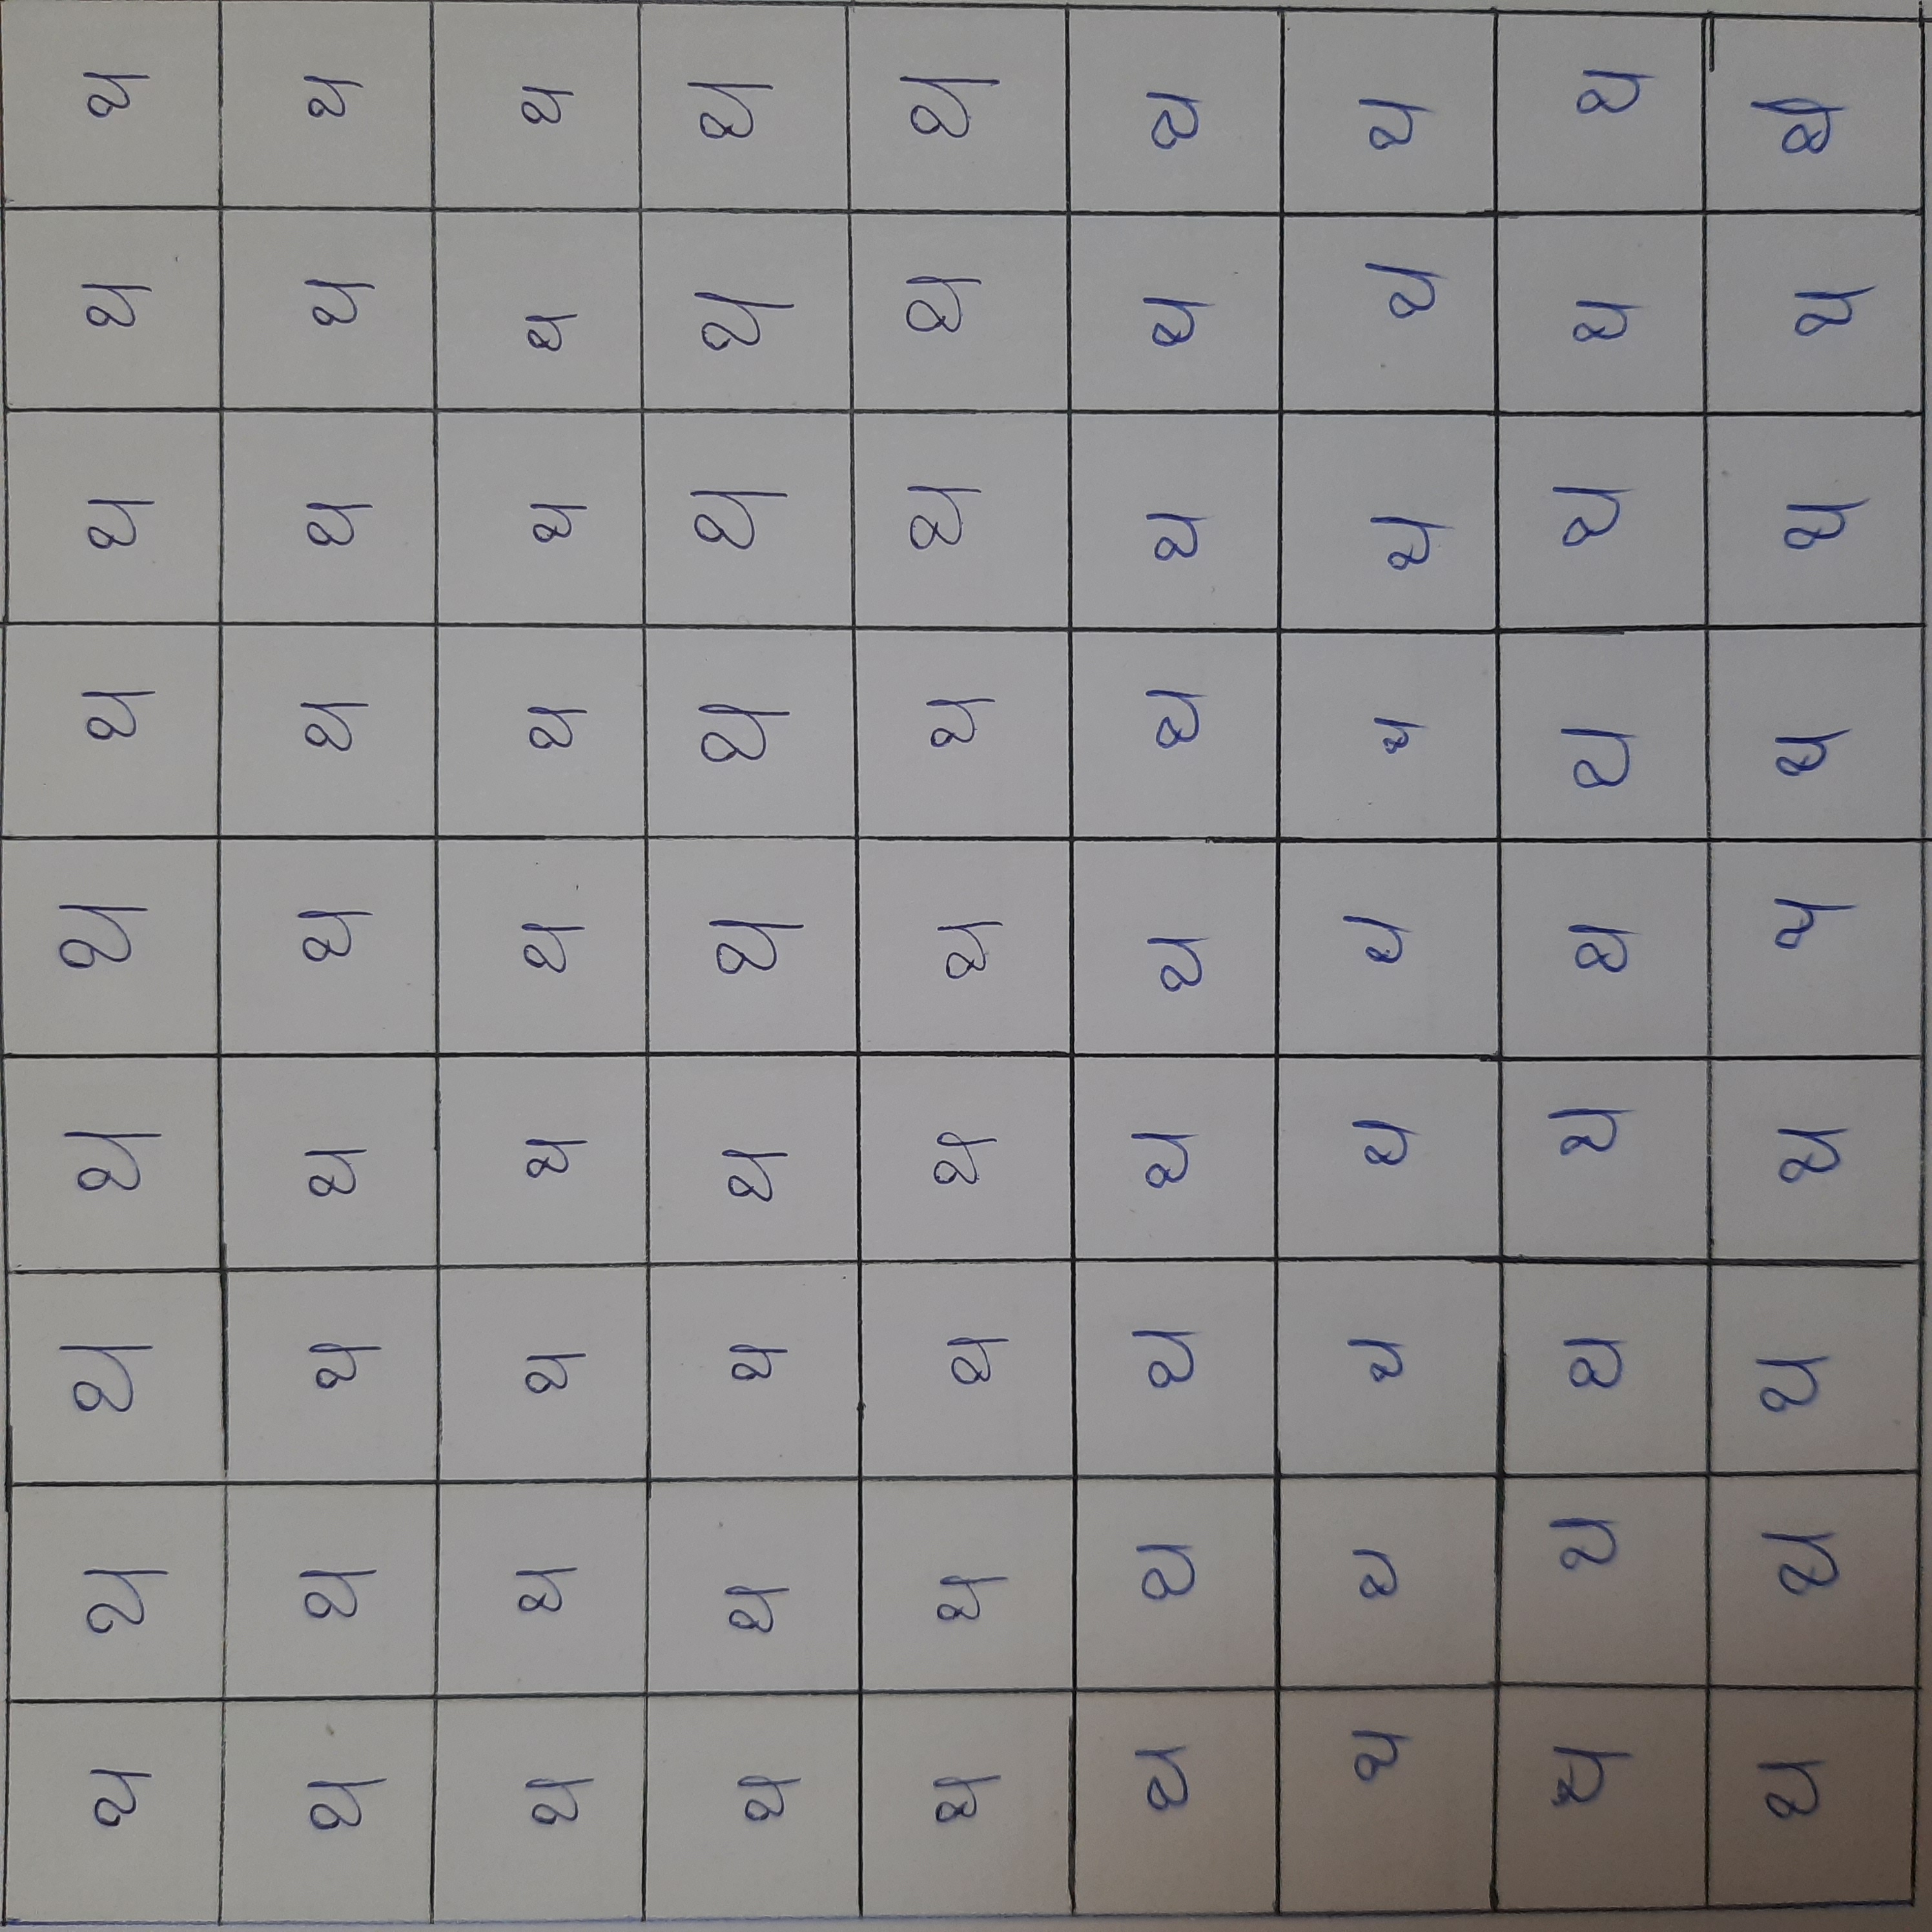 થ થ થ થ થ થ થ થ થ
થ થ થ થ થ થ થ થ થ
થ થ થ થ થ થ થ થ થ
થ થ થ થ થ થ થ થ થ
થ થ થ થ થ થ થ થ થ
થ થ થ થ થ થ થ થ થ
થ થ થ થ થ થ થ થ થ
થ થ થ થ થ થ થ થ થ
થ થ થ થ થ થ થ થ થ